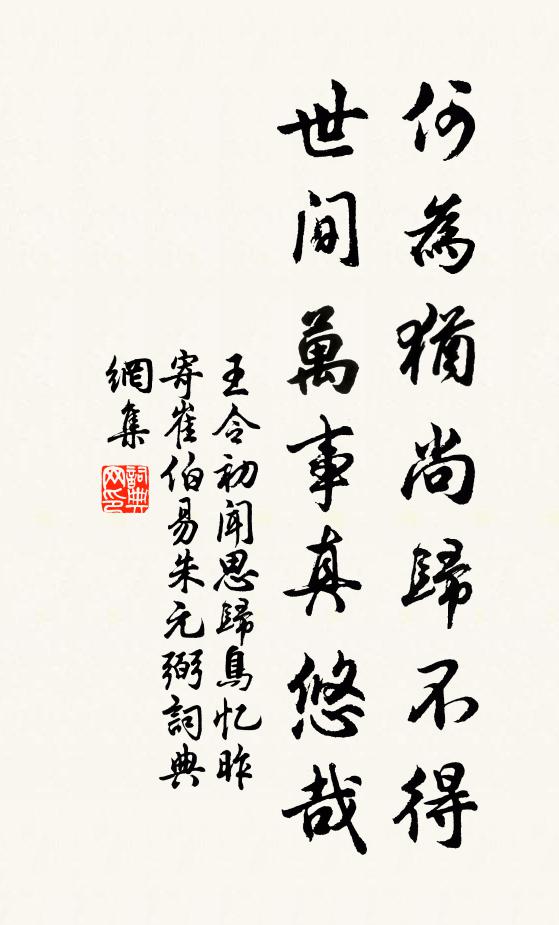 何為猶尚歸不得
世間萬事真悠哉
王令初聞思歸鳥忆昨
寄崔伯易朱元弼詞典
網集
詞典
网印